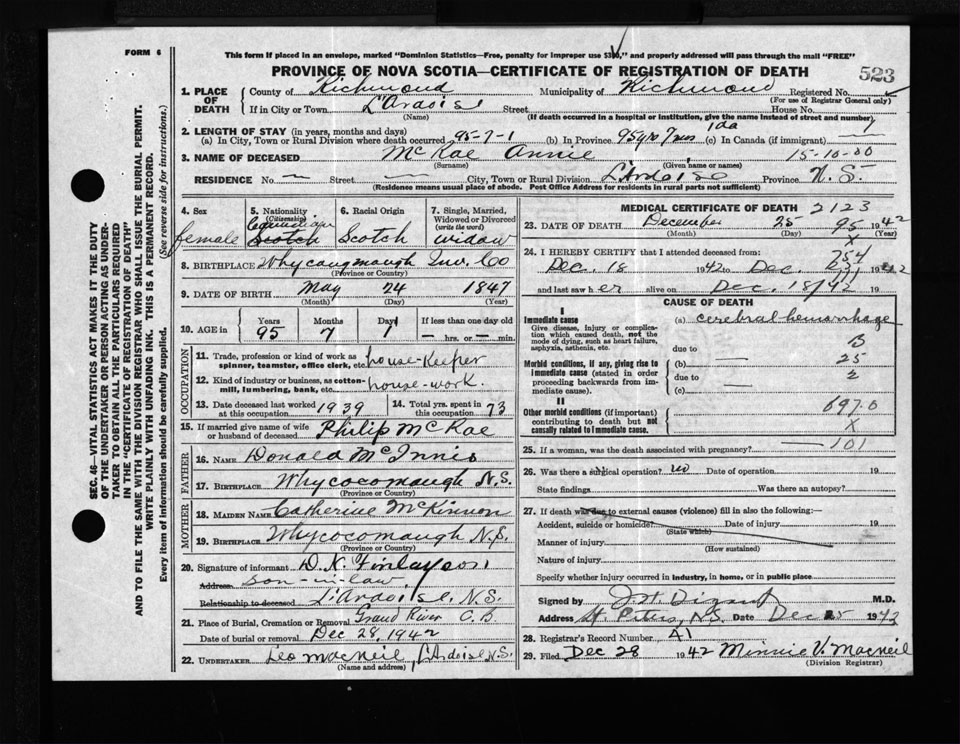 FORM 6
This form if placed in an envelope, marked "Dominion Statistics—Free, penalty for improper use $300," and properly addressed will pass through the mail "FREE"
PROVINCE OF NOVA SCOTIA—CERTIFICATE OF REGISTRATION OF DEATH
523
1. PLACE OF DEATH
County of Richmond Municipality of Richmond Registered No.
(For use of Registrar General only)
If in City or Town L'Ardoise Street House No.
(Name) (If death occurred in a hospital or institution, give the name instead of street and number)
2. LENGTH OF STAY (in years, months and days)
(a) In City, Town or Rural Division where death occurred 95-7-1 (b) In Province 95 yrs 7 mos 1 da (c) In Canada (if immigrant)
3. NAME OF DECEASED McRae Annie 15-10-00
(Surname) (Given name or names)
RESIDENCE No. — Street — City, Town or Rural Division L'Ardoise Province N.S.
(Residence means usual place of abode. Post Office Address for residents in rural parts not sufficient)
4. Sex female
5. Nationality (Citizenship) Canadian Scotch
6. Racial Origin Scotch
7. Single, Married, Widowed or Divorced (write the word) widow
8. BIRTHPLACE Whycocomaugh Inv. Co
(Province or Country)
9. DATE OF BIRTH May 24 1847
(Month) (Day) (Year)
10. AGE in Years 95 Months 7 Days 1 If less than one day old — hrs. or — min.
OCCUPATION
11. Trade, profession or kind of work as spinner, teamster, office clerk, etc. house-keeper
12. Kind of industry or business, as cotton-mill, lumbering, bank, etc. house-work.
13. Date deceased last worked at this occupation 1939 14. Total yrs. spent in this occupation 73
15. If married give name of wife or husband of deceased Philip McRae
FATHER
16. NAME Donald McInnis
17. BIRTHPLACE Whycocomaugh N.S.
(Province or Country)
MOTHER
18. MAIDEN NAME Catherine McKinnon
19. BIRTHPLACE Whycocomaugh N.S.
(Province or Country)
20. Signature of informant D. K. Finlayson
Address son-in-law
Relationship to deceased L'Ardoise, N.S.
21. Place of Burial, Cremation or Removal Grand River C.B.
Date of burial or removal Dec 28, 1942
22. UNDERTAKER Leo MacNeil, L'Ardoise N.S.
(Name and address)
MEDICAL CERTIFICATE OF DEATH 2123
23. DATE OF DEATH December 25 95 1942
(Month) (Day) X (Year)
24. I HEREBY CERTIFY that I attended deceased from: 254
Dec. 18 1942 to Dec. 1942
and last saw her alive on Dec. 18/42 19
CAUSE OF DEATH
I
Immediate cause
Give disease, injury or complication which caused death, not the mode of dying, such as heart failure, asphyxia, asthenia, etc.
(a) cerebral hemorrhage
due to B
Morbid conditions, if any, giving rise to immediate cause (stated in order proceeding backwards from immediate cause).
(b) — 25
due to 2
(c) —
II
Other morbid conditions (if important) contributing to death but not causally related to immediate cause.
697.0
X
25. If a woman, was the death associated with pregnancy? — 101
26. Was there a surgical operation? no Date of operation 19
State findings Was there an autopsy?
27. If death was due to external causes (violence) fill in also the following:—
Accident, suicide or homicide? Date of injury 19
(State which)
Manner of injury
(How sustained)
Nature of injury
Specify whether injury occurred in industry, in home, or in public place
Signed by M.D.
Address St. Peters, N.S. Date Dec 1942
28. Registrar's Record Number A1
29. Filed Dec 28 1942 Minnie V. MacNeil
(Division Registrar)
SEC. 46—VITAL STATISTICS ACT MAKES IT THE DUTY
OF THE UNDERTAKER OR PERSON ACTING AS UNDERTAKER
TO OBTAIN ALL THE PARTICULARS REQUIRED
IN THE "CERTIFICATE OF REGISTRATION OF DEATH"
AND TO FILE THE SAME WITH THE DIVISION REGISTRAR WHO SHALL ISSUE THE BURIAL PERMIT.
WRITE PLAINLY WITH UNFADING INK. THIS IS A PERMANENT RECORD.
Every item of information should be carefully supplied. (See reverse side for instructions.)